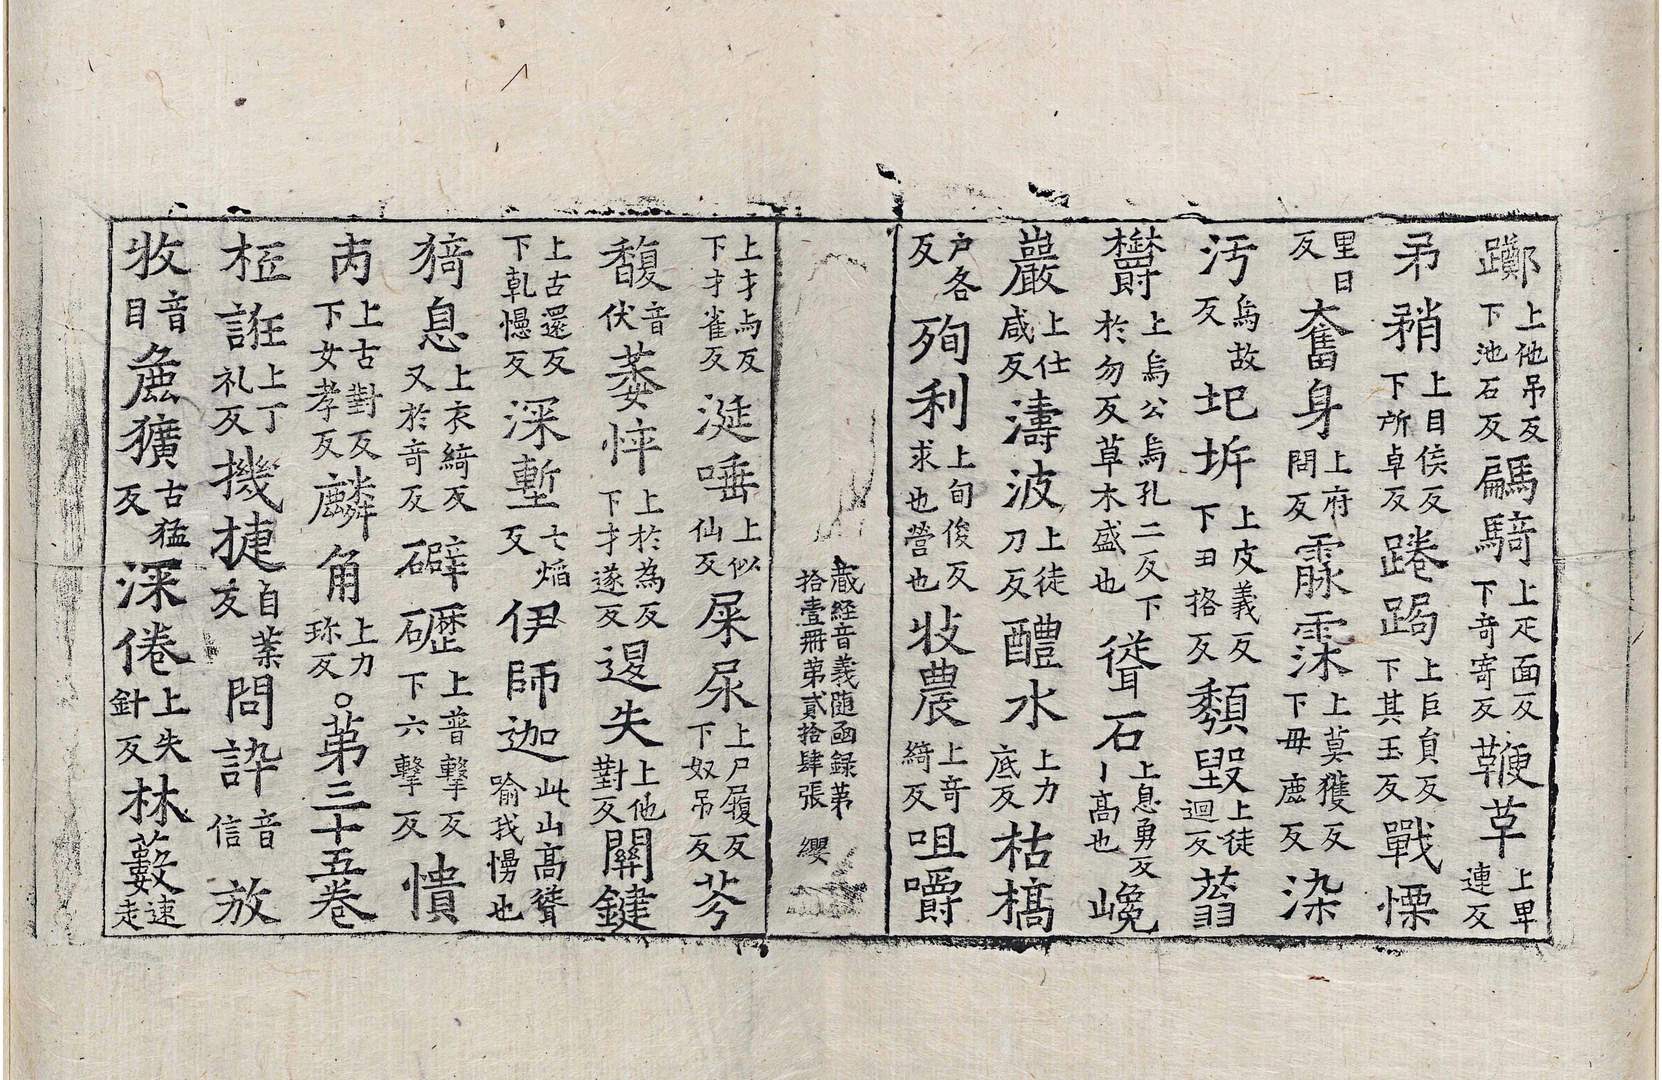 躑上他吊反下池石反騗騎上疋面反下奇寄反鞭草上毕連反
矛矟上目侯反下所卓反踡跼上巨負反下其玉反戰慄
里日反奮身上府問反霡霂上莫獲反下毋鹿反染
汚烏故反圯坼上皮義反下丑挌反頽毀上徒迴反蓊
欝上烏公烏孔二反下於勿反草木盛也嵷石上息勇反丨高也巉
巖上仕咸反濤波上徒刀反醴水上力底反枯槁
户各反殉利上旬俊反求也營也妝農上奇綺反咀嚼
藏經音義随函録第拾壹冊第貳拾肆張 纓
上才与反下才雀反涎唾上似仙反屎尿上尸履反下奴吊反芬
馥音伏萎悴上於為反下才遂反退失上他對反關鍵
上古還反下乹㦥反深塹七焰反伊師迦此山高聳喻我慢也
猗息上衣綺反又於竒反礔礰上普擊反下六擊反憒
丙上古對反下女孝反麟角上力珎反○第三十五卷
枉誑上丁礼反機捷自葉反問誶音信放
牧音目麁獷古猛反深倦上失針反林藪速走